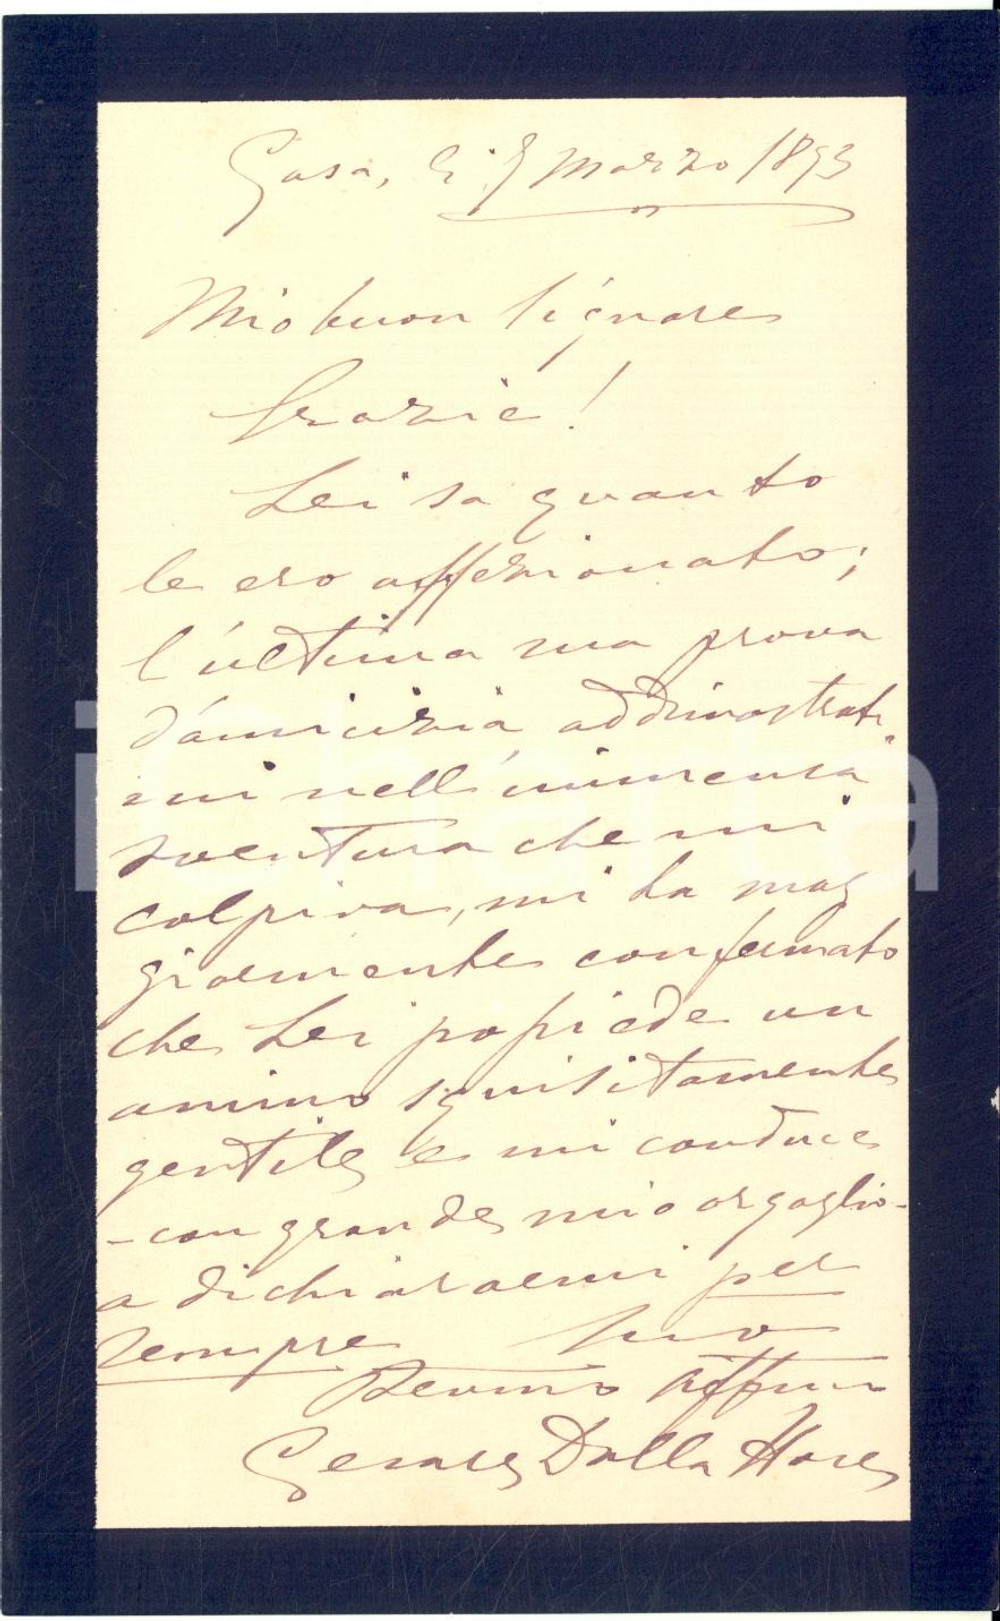 Casa, li 9 Marzo 1893
Mio buon Signore
Grazie!
Lei sa quanto
le ero affezionato;
l'ultima sua prova
d'amicizia addimostrata
mi nell'immensa
sventura che mi
colpiva, mi ha mag
giormente confermato
che Lei possiede un
animo squisitamente
gentile e mi conduce
- con grande mio orgoglio -
a dichiararmi per
sempre suo
Devmo Affmo
Cesare Dalla
icharta